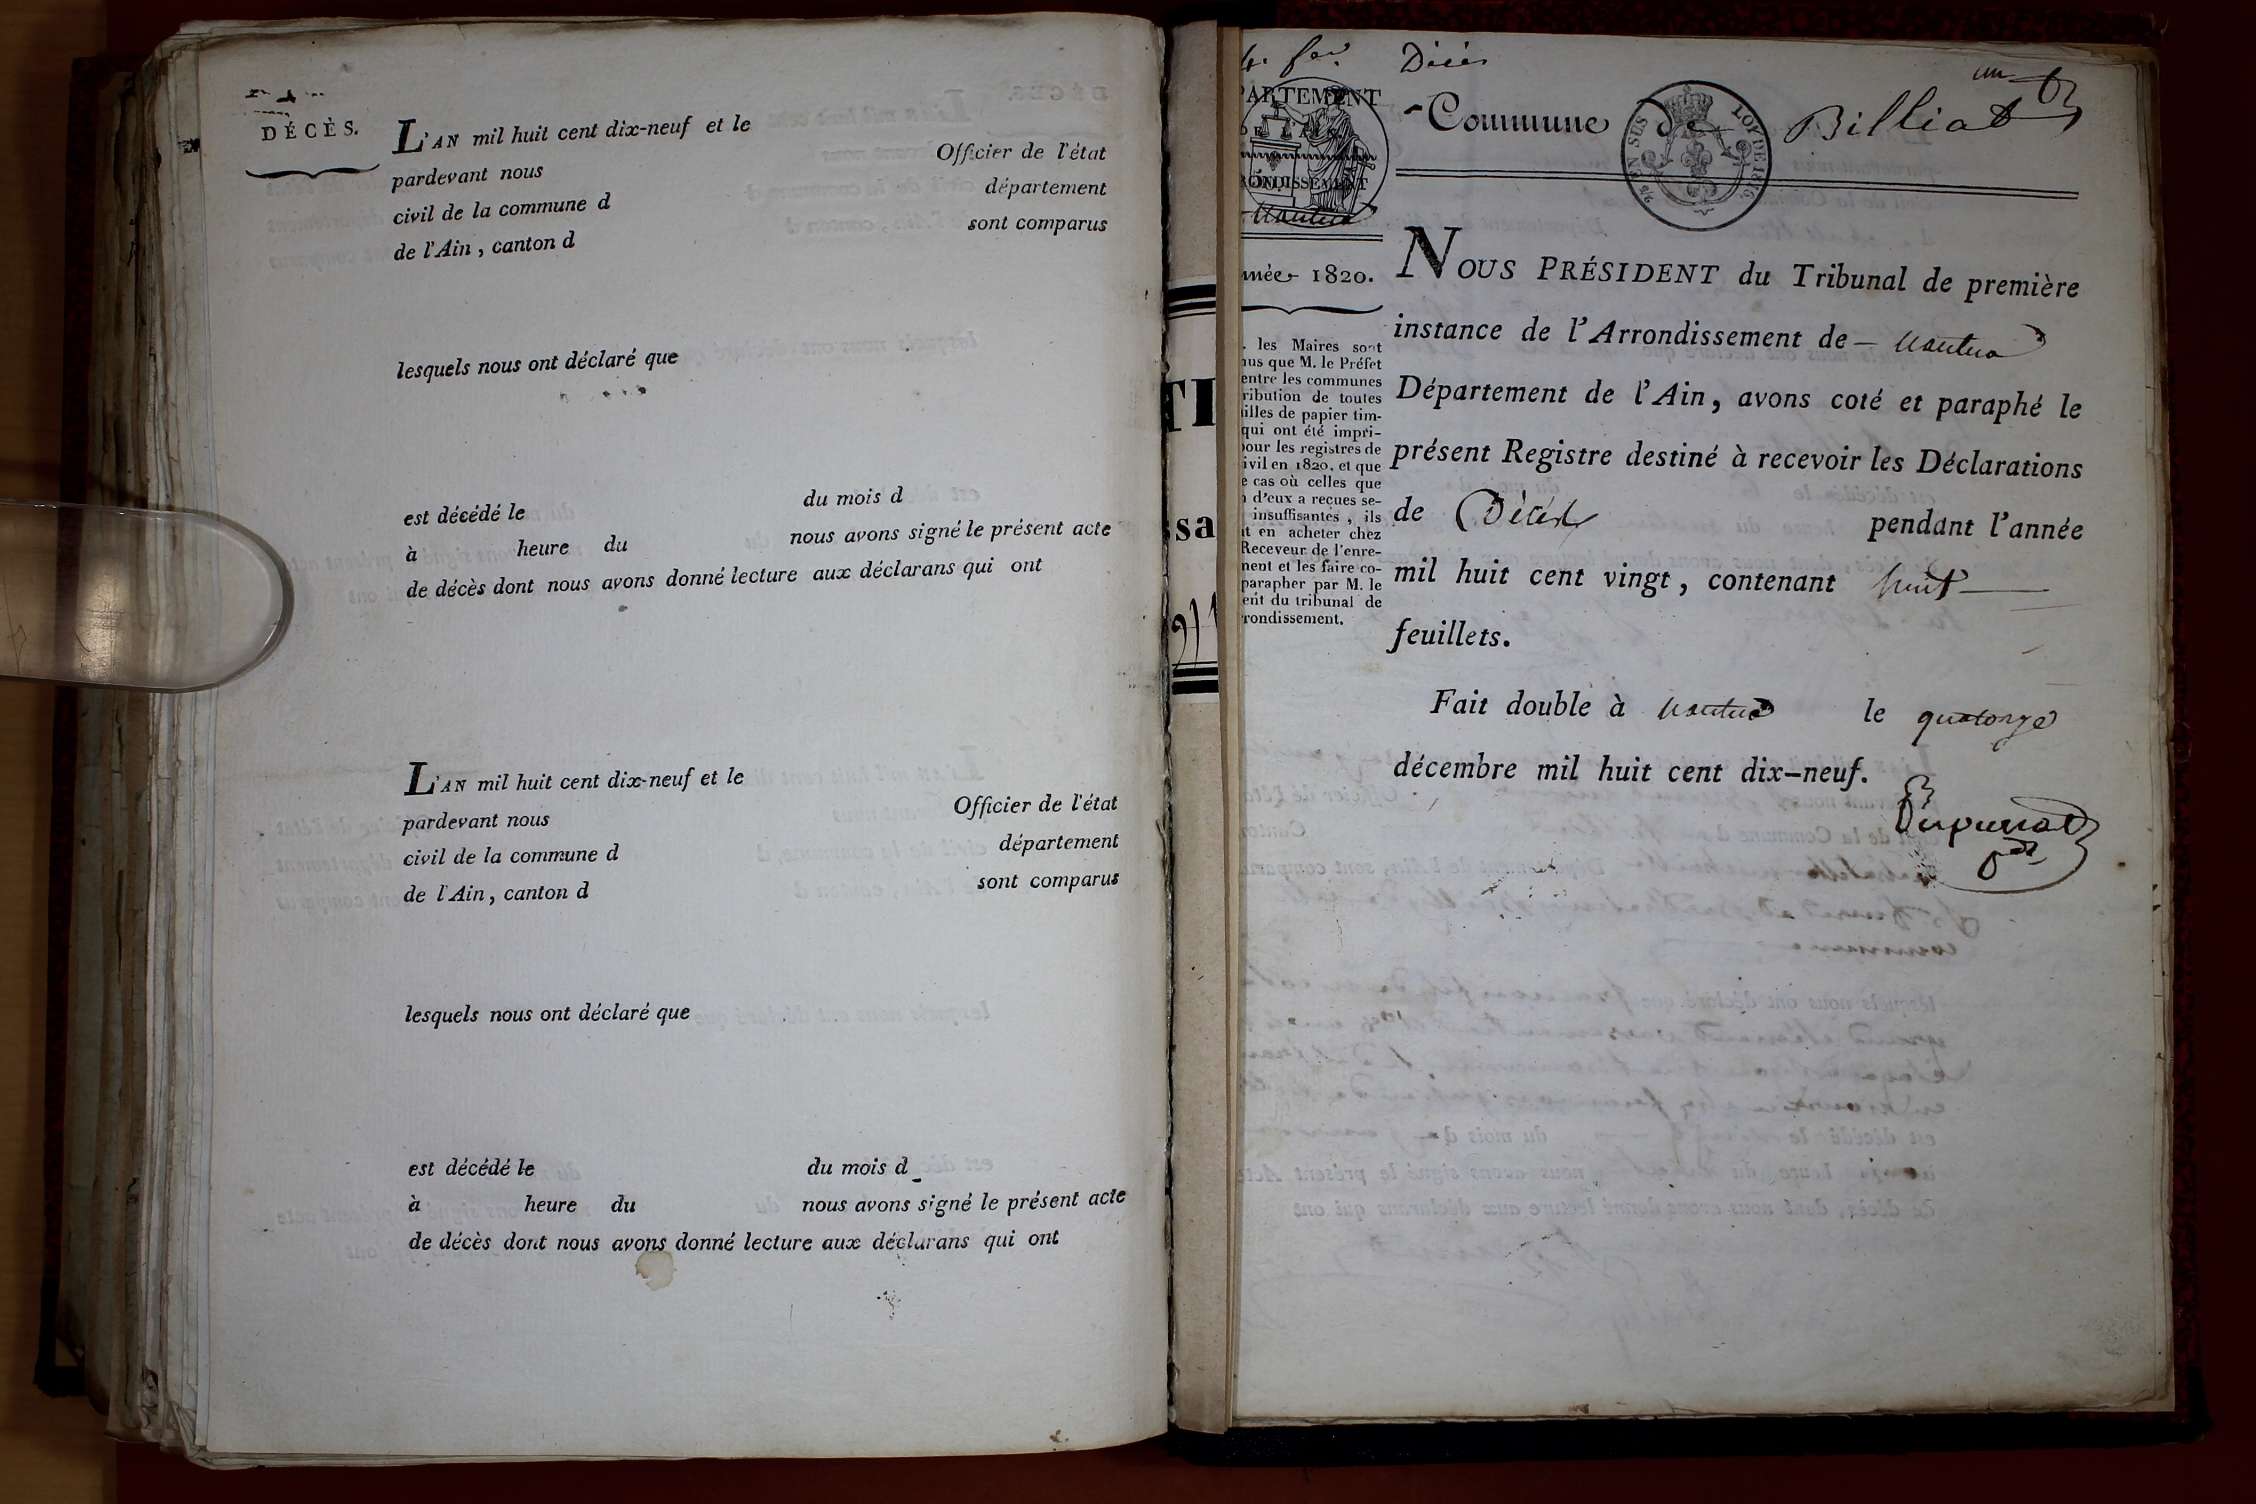 DÉCÈS.
L'AN mil huit cent dix-neuf et le
pardevant nous Officier de l'état
civil de la commune d département
de l'Ain, canton d sont comparus
lesquels nous ont déclaré que
est décédé le du mois d
à heure du nous avons signé le présent acte
de décès dont nous avons donné lecture aux déclarans qui ont
L'AN mil huit cent dix-neuf et le
pardevant nous Officier de l'état
civil de la commune d département
de l'Ain, canton d sont comparus
lesquels nous ont déclaré que
est décédé le du mois d
à heure du nous avons signé le présent acte
de décès dont nous avons donné lecture aux déclarans qui ont
TI
ssa
4. fer Décès
PARTEMENT
DE L'AIN.
RONDISSEMENT
Nantua
nnée 1820.
. les Maires sont
nus que M. le Préfet
entre les communes
ribution de toutes
illes de papier tim-
qui ont été impri-
pour les registres de
ivil en 1820, et que
e cas où celles que
n d'eux a reçues se-
insuffisantes, ils
nt en acheter chez
Receveur de l'enre-
ment et les faire co-
parapher par M. le
ent du tribunal de
rrondissement.
un
Commune de Billiat
EN SUS LOY DE 1816
NOUS PRÉSIDENT du Tribunal de première
instance de l'Arrondissement de – Nantua
Département de l'Ain, avons coté et paraphé le
présent Registre destiné à recevoir les Déclarations
de Décès pendant l'année
mil huit cent vingt, contenant huit
feuillets.
Fait double à Nantua le quatorze
décembre mil huit cent dix-neuf.